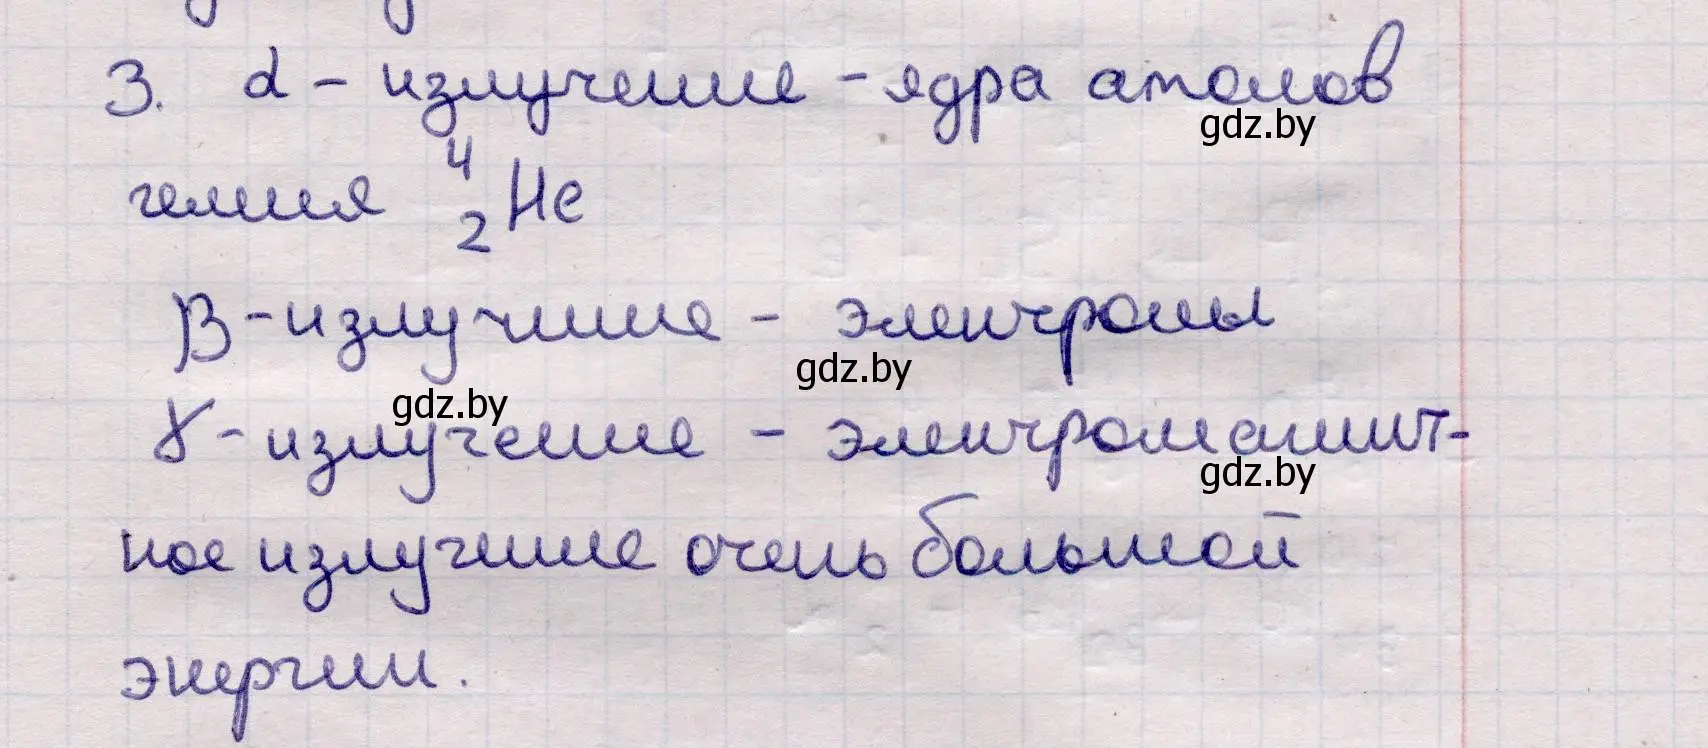 3. α - излучение - ядра атомов
gdz.by
гелия ⁴₂He
β - излучение - электроны
gdz.by
gdz.by
γ - излучение - электромагнит-
gdz.by
ное излучение очень большой
энергии.